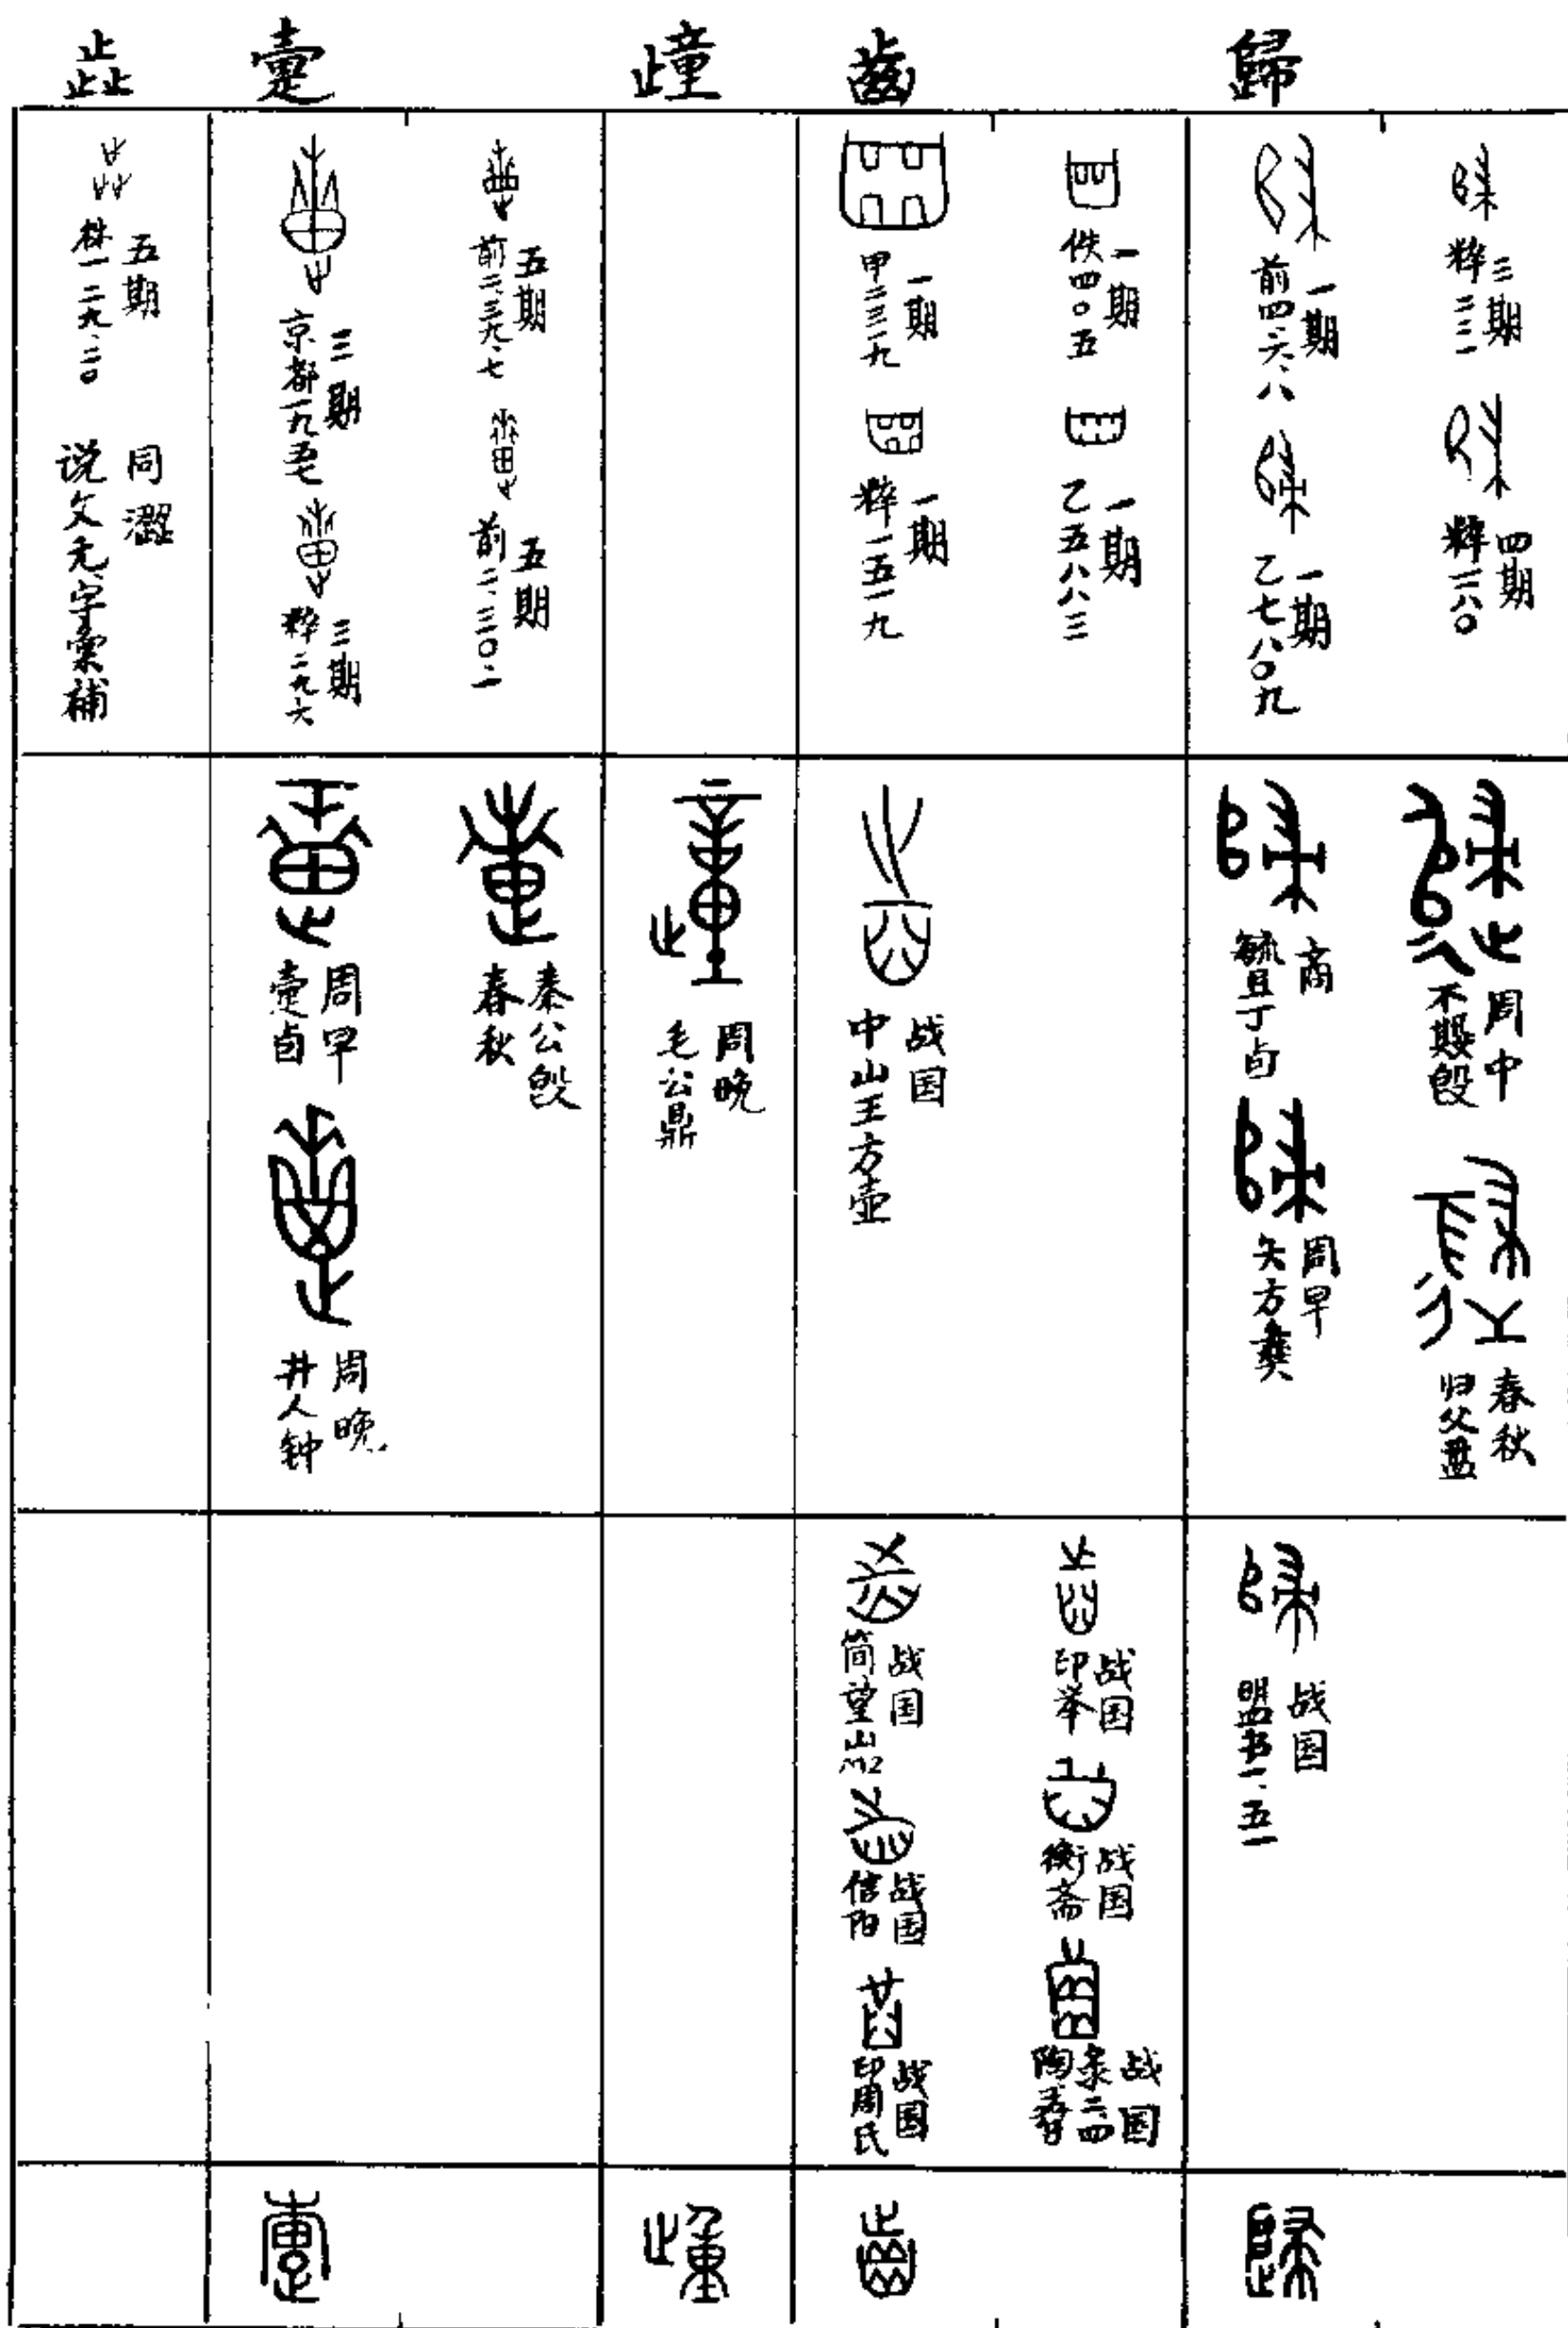 歸
齒
歱
疐
歮
三期
粹二二一
四期
粹二八〇
一期
前四·六·八
一期
乙七八〇九
一期
佚四〇五
一期
乙五八八三
一期
甲二三一九
一期
粹一五一九
五期
前二·三九·七
五期
前二·三〇·一
三期
三期
粹二九六
五期
林一·二九·二〇
同澀
说文无字汇补
周中
不𡢁𣪘
春秋
归父盘
商
毓且丁卣
周早
矢方彝
战国
中山王方壶
周晚
毛公鼎
秦公𣪘
春秋
周早
疐卣
周晚
井人钟
战国
盟书一·五一
战国
印举
战国
衡斋
战国
战国
简望山
战国
信阳
战国
印周氏
歸
齒
歱
疐